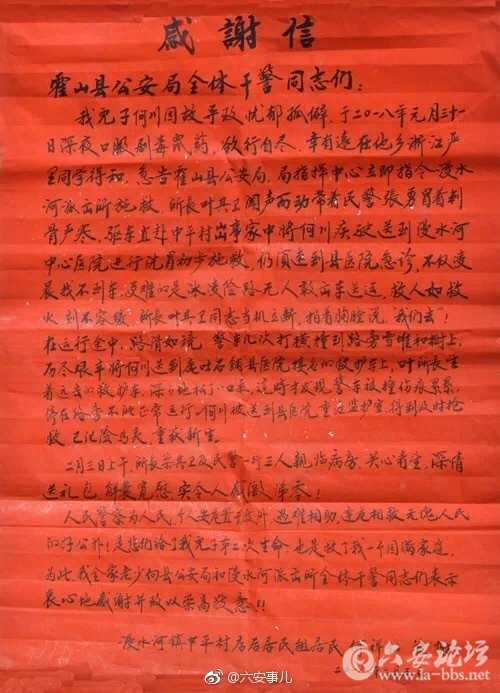 感謝信
霍山县公安局全体干警同志们：
我儿子何川因故导致忧郁孤僻，于二〇一八年元月三十一
日深夜口服剧毒鼠药，欲行自尽，幸有远在他乡浙江严
同学得知，急告霍山县公安局，局指挥中心立即指令漫水
河派出所施救，所长叶其卫闻声而动带着民警张勇冒着刺
骨严寒，驱车直赴中平村出事家中将何川疾被送到漫水河
中心医院进行洗胃初步施救，仍须送到县医院急诊，不仅凌
晨找不到车，更难的是冰凌险路无人敢出车送运，救人如救
火刻不容缓，所长叶其卫同志当机立断，拍着胸膛说，我们去！
在运行途中，路滑如镜，警车几次打横撞到路旁雪堆和树上，
历尽艰辛将何川送到鹿吐石铺县医院接应的救护车上，叶所长望
着远去的救护车，深深地松了一口气，这时才发现警车被撞伤痕累累，
停在路旁不能正常运行，何川被送到县医院重症监护室，得到及时抢
救已化险为夷，重获新生。
二月三日上午，所长叶其卫及民警一行三人亲临病房，关心看望，深情
送礼包，所表宽慰，实令人感激涕零！
人民警察为人民，个人安危置度外，遇难相助，逢危相救无愧人民
的好公仆！是您们给了我儿子第二次生命，也是救了我一个圆满家庭，
为此，我全家老少向县公安局和漫水河派出所全体干警同志们表示
衷心地感谢并致以崇高敬意！！
漫水河镇中平村店居民组居民
二
@六安事儿
六安论坛
www.la-bbs.net